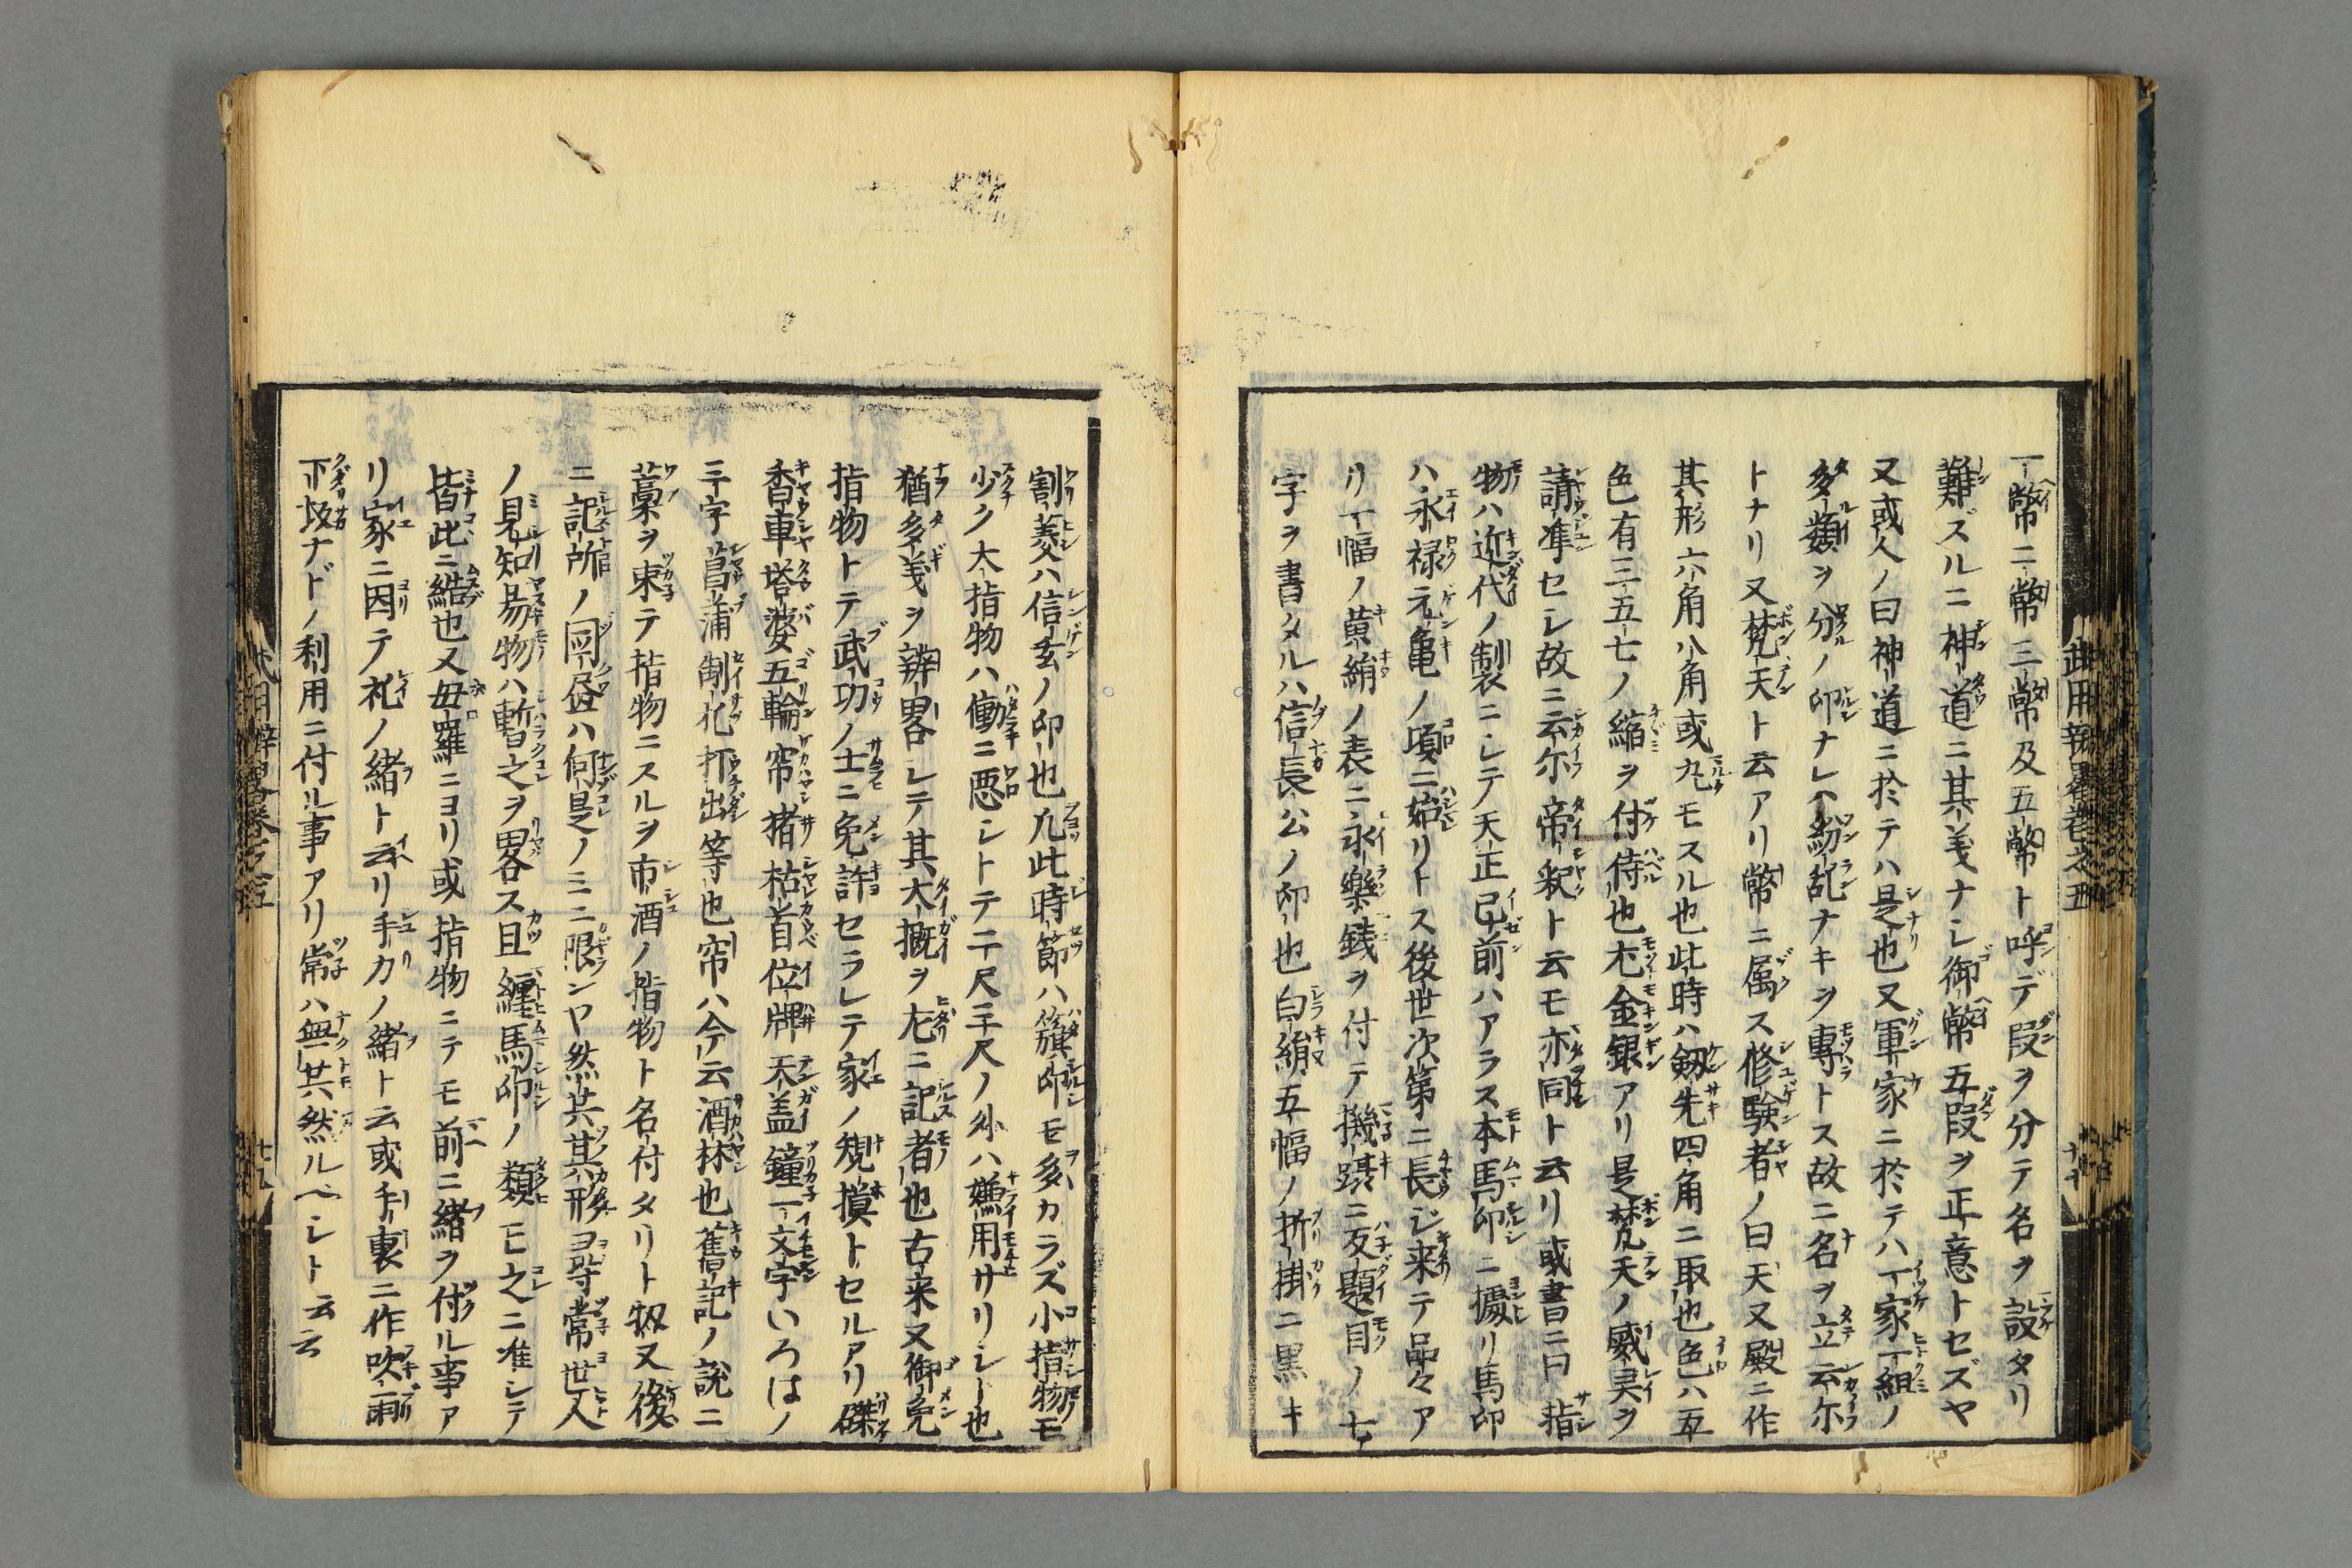 一幣二幣三幣及五幣ト呼デ叚ヲ分テ名ヲ設タリ
難ズルニ神道ニ其義ナシ御幣五叚ヲ正意トセズヤ
又或人ノ曰神道ニ於テハ是也又軍家ニ於テハ一家一組ノ
多類ヲ分ノ印ナレハ紛乱ナキヲ專トス故ニ名ヲ立云尓
トナリ又梵天ト云アリ幣ニ属ス修験者ノ曰天又殿ニ作
其形六角八角或丸モスル也此時ハ剱先四角ニ取也色ハ五
色有三五七ノ縮ヲ付侍也尤金銀アリ是梵天ノ威灵ヲ
請準セレ故ニ云尓帝釈ト云モ亦同ト云リ或書ニ曰指
物ハ近代ノ製ニシテ天正已前ハアラス本馬印ニ據リ馬印
ハ永禄元亀ノ項ニ始リトス後世次第ニ長シ来テ品々ア
リ一幅ノ黄絹ノ表ニ永樂錢ヲ付テ機ニ及題目ノ七
字ヲ書タルハ信長公ノ印也白絹五幅ノ折掛ニ黒キ
割菱ハ信玄ノ印也凡此時節ハ籏印モ多カラズ小指物モ
少ク大指物ハ働ニ悪シトテ二尺三尺ノ外ハ嫌用サリシ也
猶多義ヲ辨畧シテ其大概ヲ左ニ記者也古来又御免
指物トテ武功ノ士ニ免許セラレテ家ノ規摸トセルアリ磔
香車塔婆五輪帘猪枯首位牌天盖鐘一文字いろはノ
三字菖蒲制札打出等也帘ハ今云酒林也舊記ノ説ニ
藁ヲ束テ指物ニスルヲ市酒ノ指物ト名付タリト扨又後
ニ記所ノ図畫ハ何是ノミニ限ンヤ然共其形ヨリ尋常世人
ノ見知易物ハ暫之ヲ畧ス且纏馬印ノ類モ之ニ准シテ
皆此ニ結也又毋羅ニヨリ或指物ニテモ前ニ緒ヲ付ル事ア
リ家ニ因テ礼ノ緒ト云リ手カノ緒ト云或手裏ニ作吹雨
下坂ナドノ利用ニ付ル事アリ常ハ無共然ルベシト云云
武用辨畧巻之五